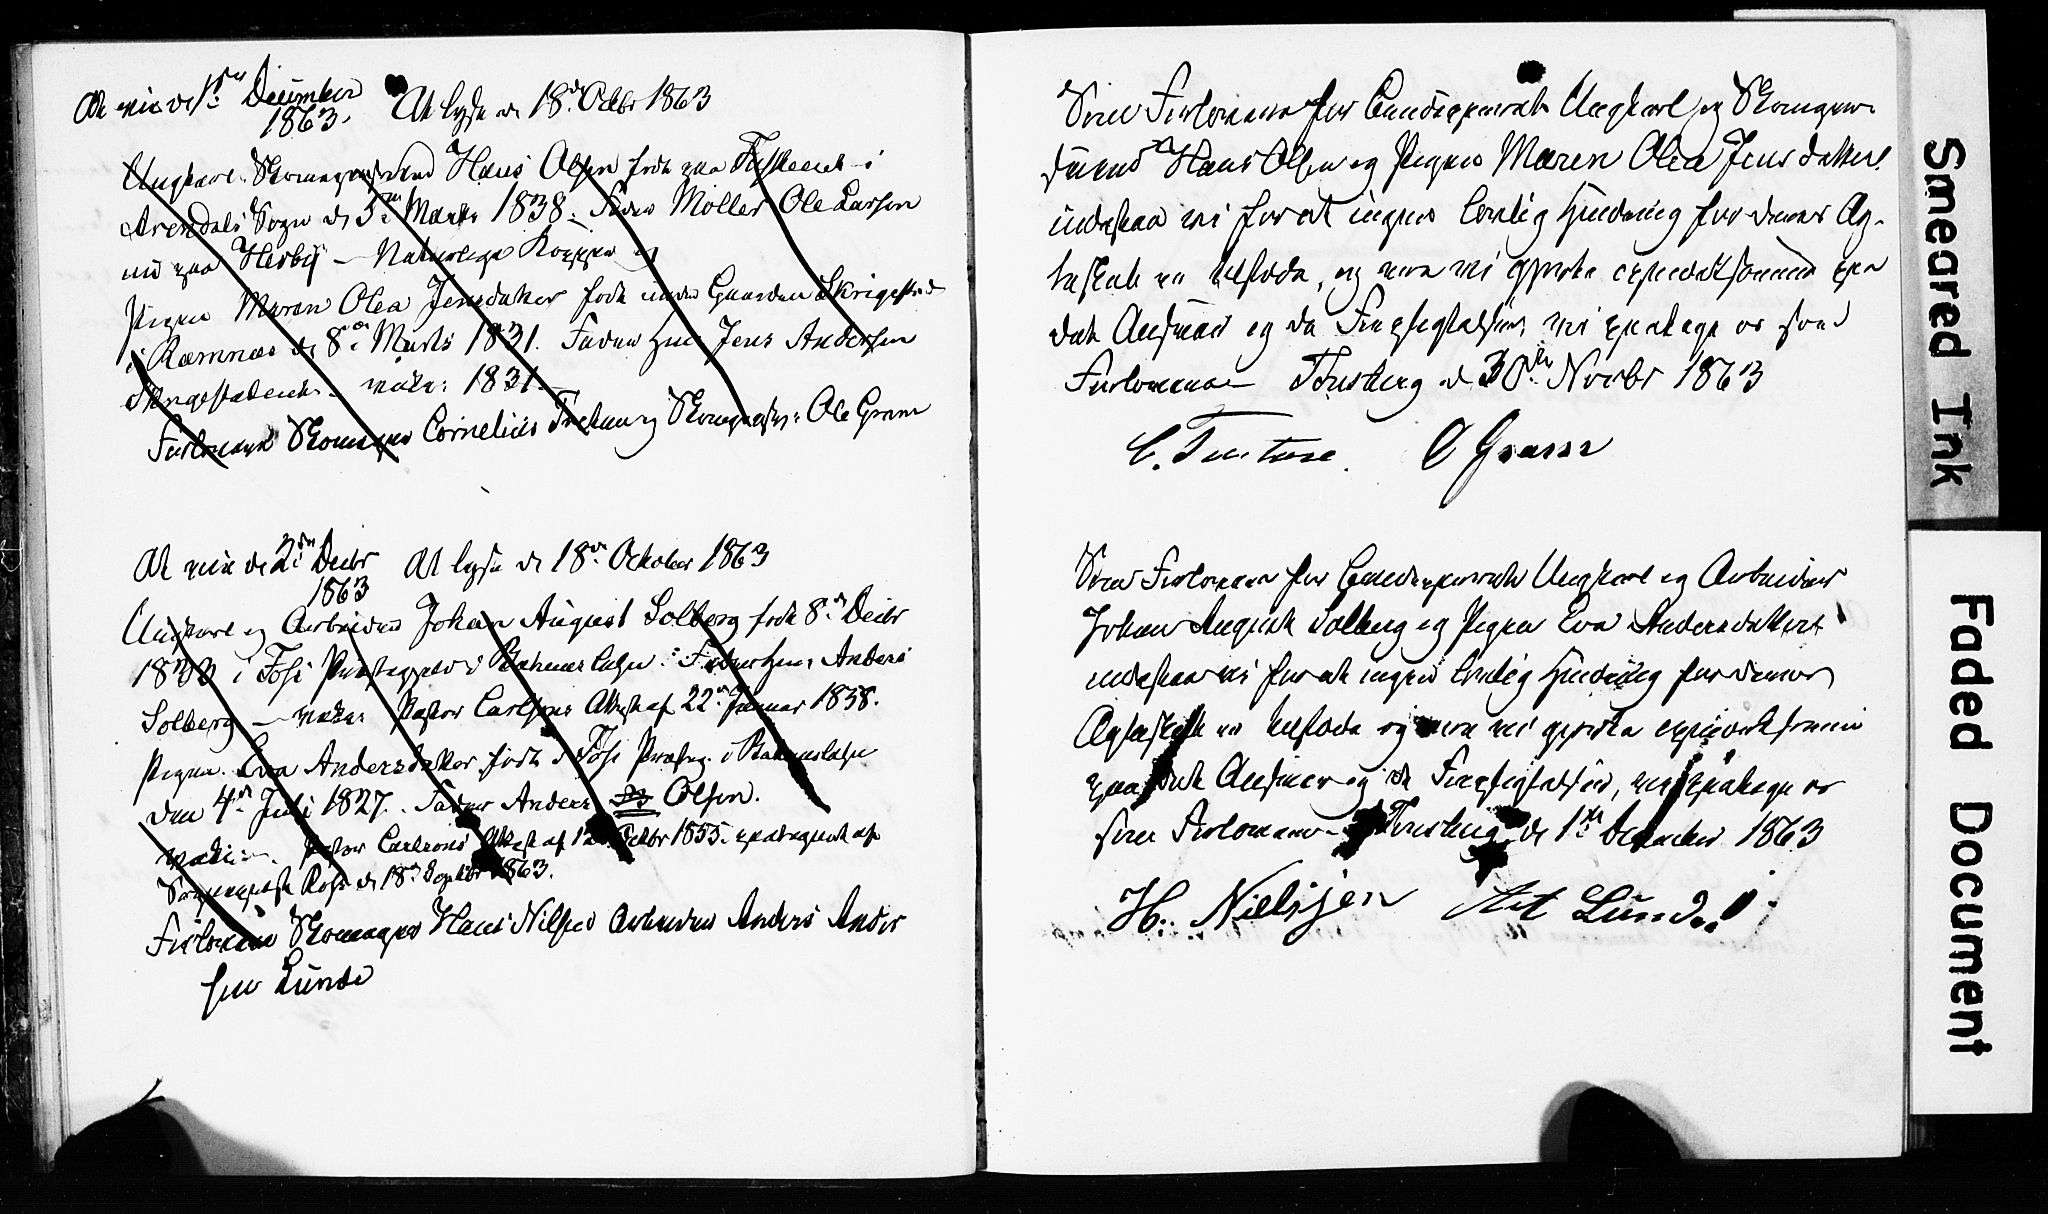 At vie d 1ste December
1863.
At lyse d 18de Octbr 1863
Ungkarl Skomagersvend Hans Olsen født paa i
Arendals Sogn d 5te Marts 1838. Fader Møller Ole Larsen
nu paa Herby - Naturlige Kopper og
Pigen Maren Olea Jensdatter født under Gaarden
i Ramnæs d 8de Marts 1831. Fader Hm Jens Andersen
vakc: 1831.
Forlovere Skomager Cornelius og Skomager Ole Gram
At vie d 2den Decbr
1863
At lyse d 18de October 1863
Ungkarl og Arbeider Johan August Solberg født 8de Decbr
i Præstegjeld i Fader Hm Anders
Solberg - vakc: Pastor Carlsons Attest af 22de Januar 1858.
Pigen Eva Andersdatter født i Præsteg. i
den 4de Juli 1827. Fader Anders Olsen.
Pastor Carlsons Attest af Octbr 1855. paategnet af
d 18de Septbr 1863.
Forlovere Skomager Hans Nilsen Arbeider Anders Ander
sen Lunde
Som Forlovere for Ungkarl og Skomager-
svend Hans Olsen og Pigen Maren Olea Jensdatter
indestaa vi for at ingen lovlig Hindring for deres Æg-
teskab er tilstede, og ere vi gjorte opmærksomme paa
det Ansvar og de Forpligtelser, vi paatage os som
Forlovere Tønsberg d 30te Novbr 1863
O Gram
Som Forlovere for Ungkarl og Arbeider
Johan August Solberg og Pigen Eva Andersdatter
indestaa vi for at ingen lovlig Hindring for deres
Ægteskab er tilstede og ere vi gjorte opmærksomme
paa det Ansvar og de Forpligtelser, vi paatage os
som Forlovere - Tønsberg d 1ste December 1863
H. Nielsjen
Lunde
Smeared Ink
Faded Document